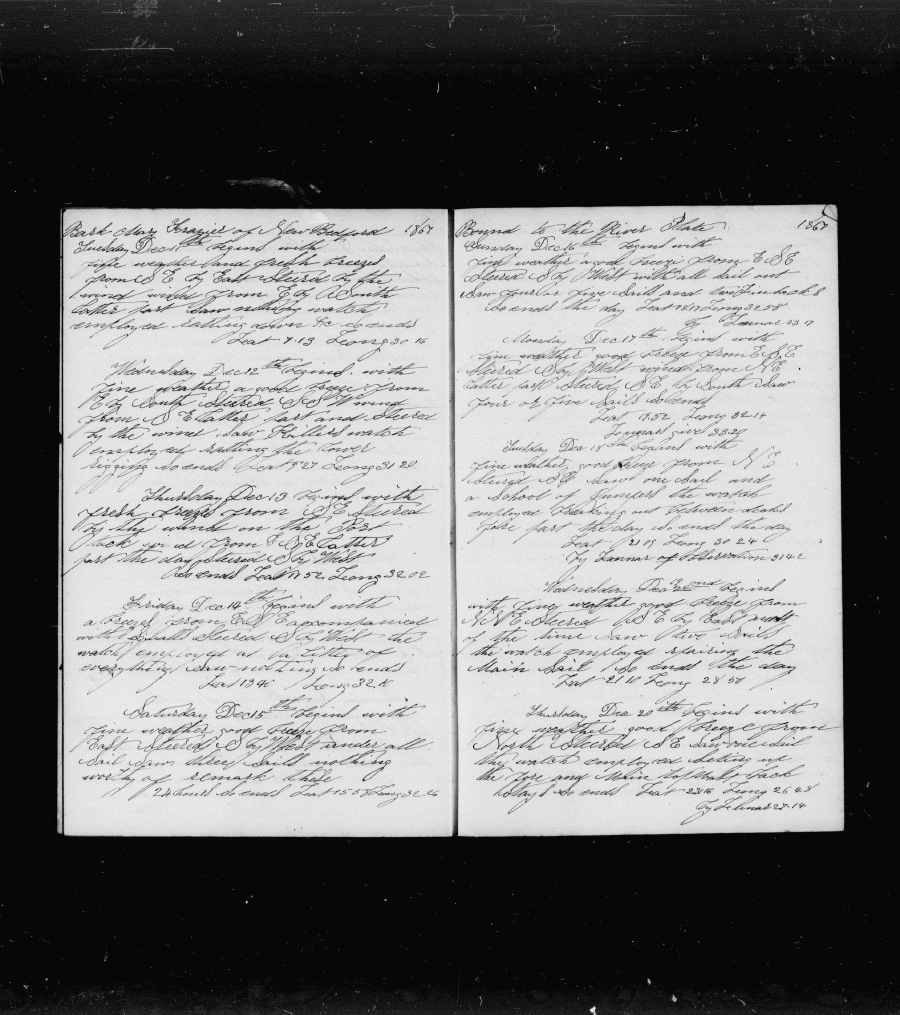 Bark Mary Frazier of New Bedford 1867
Tuesday Dec 11th begins with
fine weather and fresh breezes
from S E by East Steered by the
wind wind from E by South
latter part Saw nothing watch
employed ratling down &c so ends
Leat 7.13 Leong 30 16
Wednesday Dec 12th begins with
fine weather a good breeze from
E by South Steered S S W wind
from S E latter part and Steered
by the wind Saw Killers watch
employed ratling the lower
rigging so ends Leat 9 27 Leong 31 20
Thursday Dec 13 begins with
fresh breeze from S E Steered
by the wind on the Port
tack wind from E S E latter
part the day Steered S by West
So ends Leat 11 52 Leong 32 02
Friday Dec 14th begins with
a breeze from E S E accompanied
with Squalls Steered S by West the
watch employed at a little of
everything Saw nothing so ends
Leat 13 40 Leong 32 10
Saturday Dec 15th begins with
fine weather good breeze from
East Steered S by West under all
Sail Saw three Sails nothing
worthy of remark these
24 hours So ends Leat 15 58 Leong 32 26
Bound to the River Plate 1867
Sunday Dec 16th begins with
fine weather a good breeze from E S E
Steered S by West with all Sail out
Saw four or five Sails and two Finbacks
So ends the day Leat 18 17 Leong 32 58
by Leunar 33 17
Monday Dec 17th begins with
fine weather good breeze from E S E
Steered S by West wind from N E
latter part Steered S E by South Saw
four or five Sails So ends
Leat 19.52 Leong 32.14
Leunars give 33.20
Tuesday Dec 18th begins with
fine weather good breeze from N E
Steered S E Saw one Sail and
a School of jumpers the watch
employed breaking out between decks
fore part the day So ends the day
Leat 21 09 Leong 30 24
by Leunar of observation 31 42
Wednesday Dec begins
with fine weather good breeze from
N N E Steered S E by East most
of the time Saw five Sails
the watch employed repairing the
Main Sail So ends the day
Leat 21 10 Leong 28 50
Thursday Dec 20th begins with
fine weather good breeze from
North Steered S E Saw one Sail
the watch employed Setting up
the fore and Main topmast back
Stays So ends Leat 23 16 Leong 26 48
by Leunar 27.14